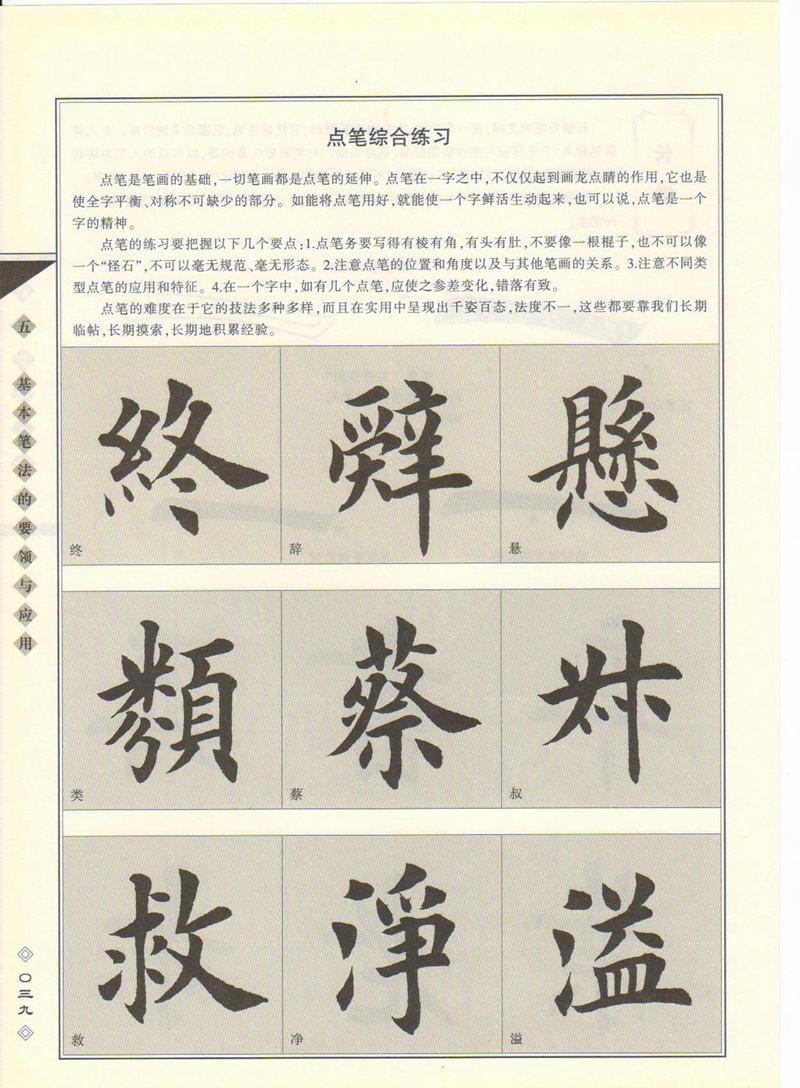 点笔综合练习
点笔是笔画的基础，一切笔画都是点笔的延伸。点笔在一字之中，不仅仅起到画龙点睛的作用，它也是
使全字平衡、对称不可缺少的部分。如能将点笔用好，就能使一个字鲜活生动起来，也可以说，点笔是一个
字的精神。
点笔的练习要把握以下几个要点：1.点笔务要写得有棱有角，有头有肚，不要像一根棍子，也不可以像
一个“怪石”，不可以毫无规范、毫无形态。2.注意点笔的位置和角度以及与其他笔画的关系。3.注意不同类
型点笔的应用和特征。4.在一个字中，如有几个点笔，应使之参差变化，错落有致。
点笔的难度在于它的技法多种多样，而且在实用中呈现出千姿百态，法度不一，这些都要靠我们长期
临帖，长期摸索，长期地积累经验。
五 基本笔法的要领与应用
終 辤 懸
终 辞 悬
類 蔡 叔
类 蔡 叔
救 淨 溢
救 净 溢
〇三九